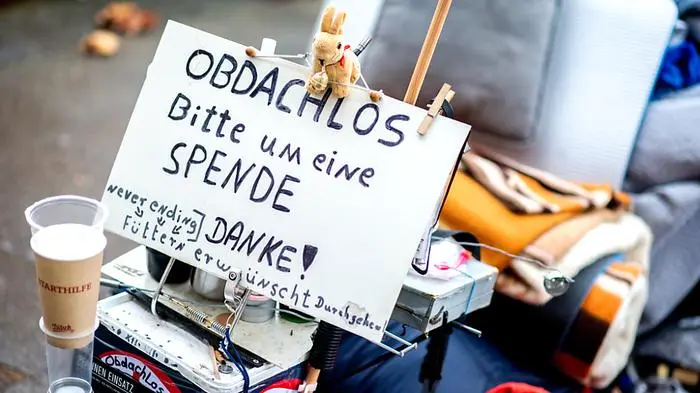 OBDACHLOS
Bitte um eine
SPENDE
never ending
Füttern
DANKE!
erwünscht Durchgehend
STARTHILFE
Obdachlos
EINEN EINSATZ